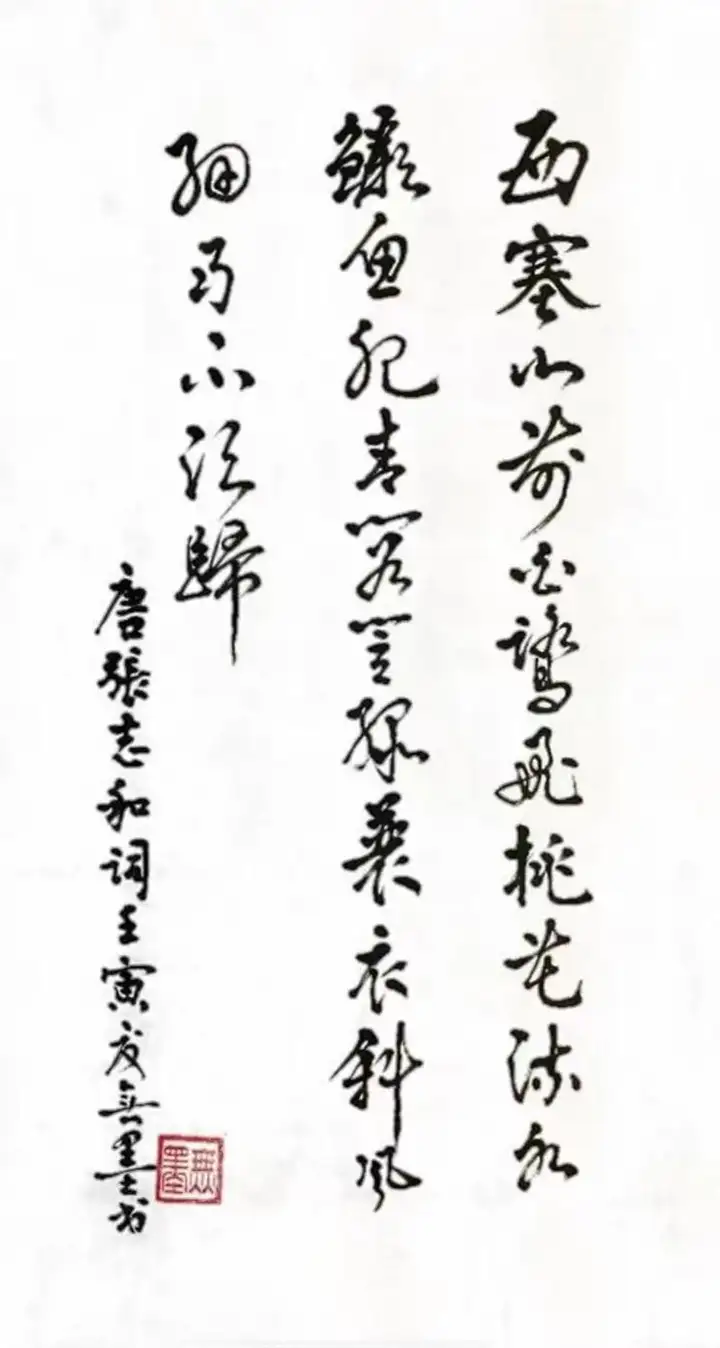 西塞山前白鷺飛桃花流水
鱖魚肥青箬笠綠蓑衣斜風
細雨不須歸
唐張志和詞壬寅夏無墨書
無墨